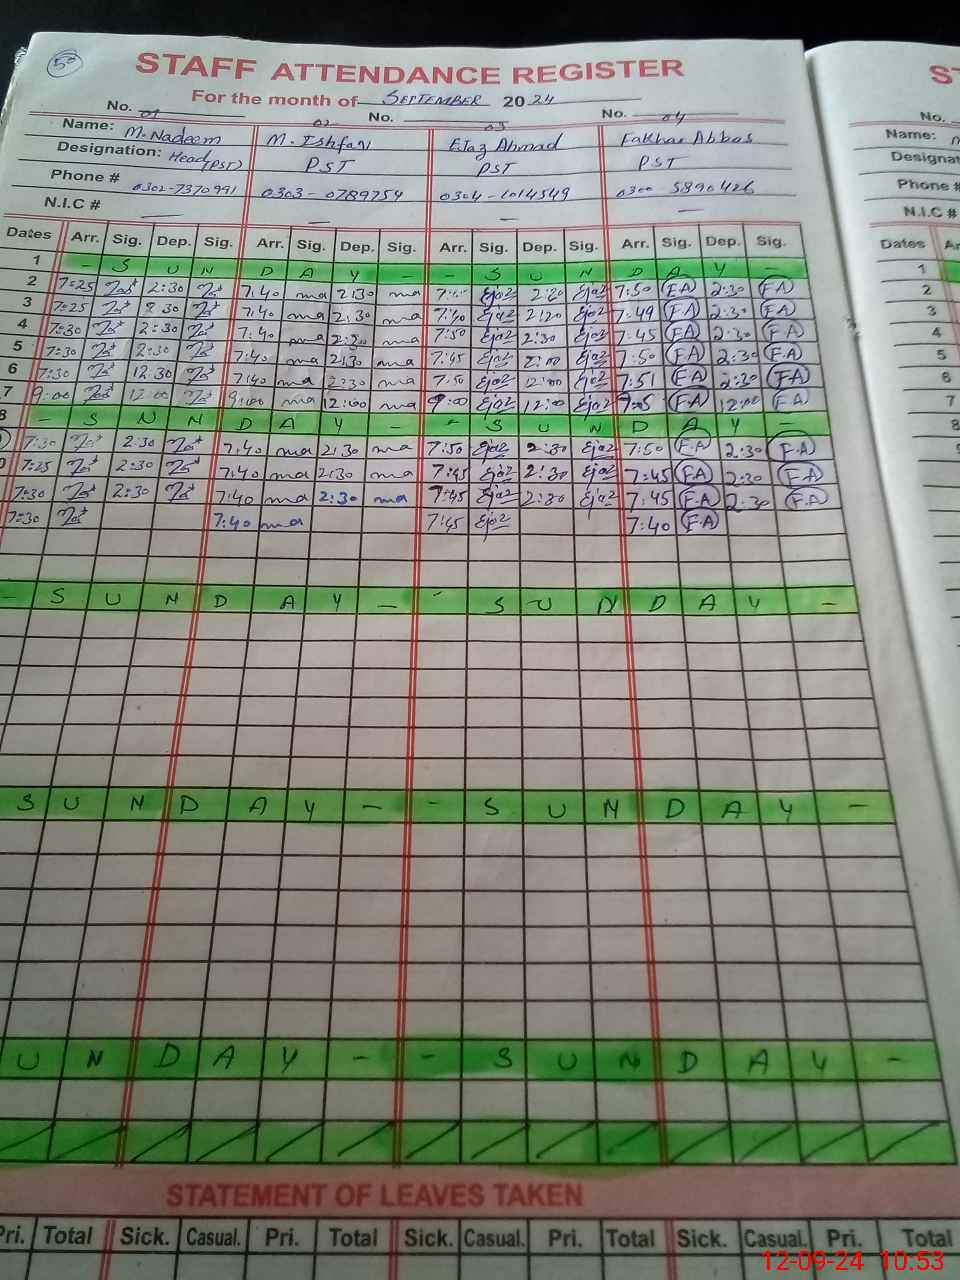 50
STAFF ATTENDANCE REGISTER
For the month of SEPTEMBER 2024
No. 01 02 No. 03 No. 04
Name: M. Nadeem M. Ishfaq Ejaz Ahmad Fakhar Abbas
Designation: Head (PST) PST PST PST
Phone # 0302-7370991 0303-0789754 0304-1014549 0300-5890426
N.I.C # — — — —
Dates Arr. Sig. Dep. Sig. Arr. Sig. Dep. Sig. Arr. Sig. Dep. Sig. Arr. Sig. Dep. Sig.
1 - S U N D A Y - - S U N D A Y -
2 7:25 2:30 7:40 ma 2:30 ma Ejaz Ejaz 7:50 F.A 2:30 F.A
3 7:25 2:30 7:40 ma 2:30 ma 7:40 Ejaz Ejaz 7:49 F.A 2:30 F.A
4 7:30 2:30 7:40 ma ma 7:50 Ejaz 2:30 Ejaz 7:45 F.A 2:30 F.A
5 7:30 2:30 7:40 ma 2:30 ma 7:45 Ejaz Ejaz 7:50 F.A 2:30 F.A
6 7:30 12:30 7:40 ma 2:30 ma 7:50 Ejaz Ejaz 7:51 F.A 2:30 F.A
7 9:00 12:00 9:00 ma 12:00 ma 9:00 Ejaz 12:00 Ejaz F.A 12:00 F.A
8 - S U N D A Y - - S U N D A Y -
7:30 2:30 7:40 ma 2:30 ma 7:50 Ejaz 2:30 Ejaz 7:50 F.A 2:30 F.A
7:25 2:30 7:40 ma 2:30 ma 7:45 Ejaz 2:30 Ejaz 7:45 F.A 2:30 F.A
7:30 2:30 7:40 ma 2:30 ma 7:45 Ejaz 2:30 Ejaz 7:45 F.A 2:30 F.A
7:30 7:40 ma 7:45 Ejaz 7:40 F.A
- S U N D A Y - - S U N D A Y -
S U N D A Y - - S U N D A Y -
U N D A Y - - S U N D A Y -
STATEMENT OF LEAVES TAKEN
Pri. Total Sick. Casual. Pri. Total Sick. Casual. Pri. Total Sick. Casual. Pri. Total
ST
No.
Name:
Designat
Phone #
N.I.C #
Dates Ar
1
2
3
4
5
6
7
8
12-09-24 10:53